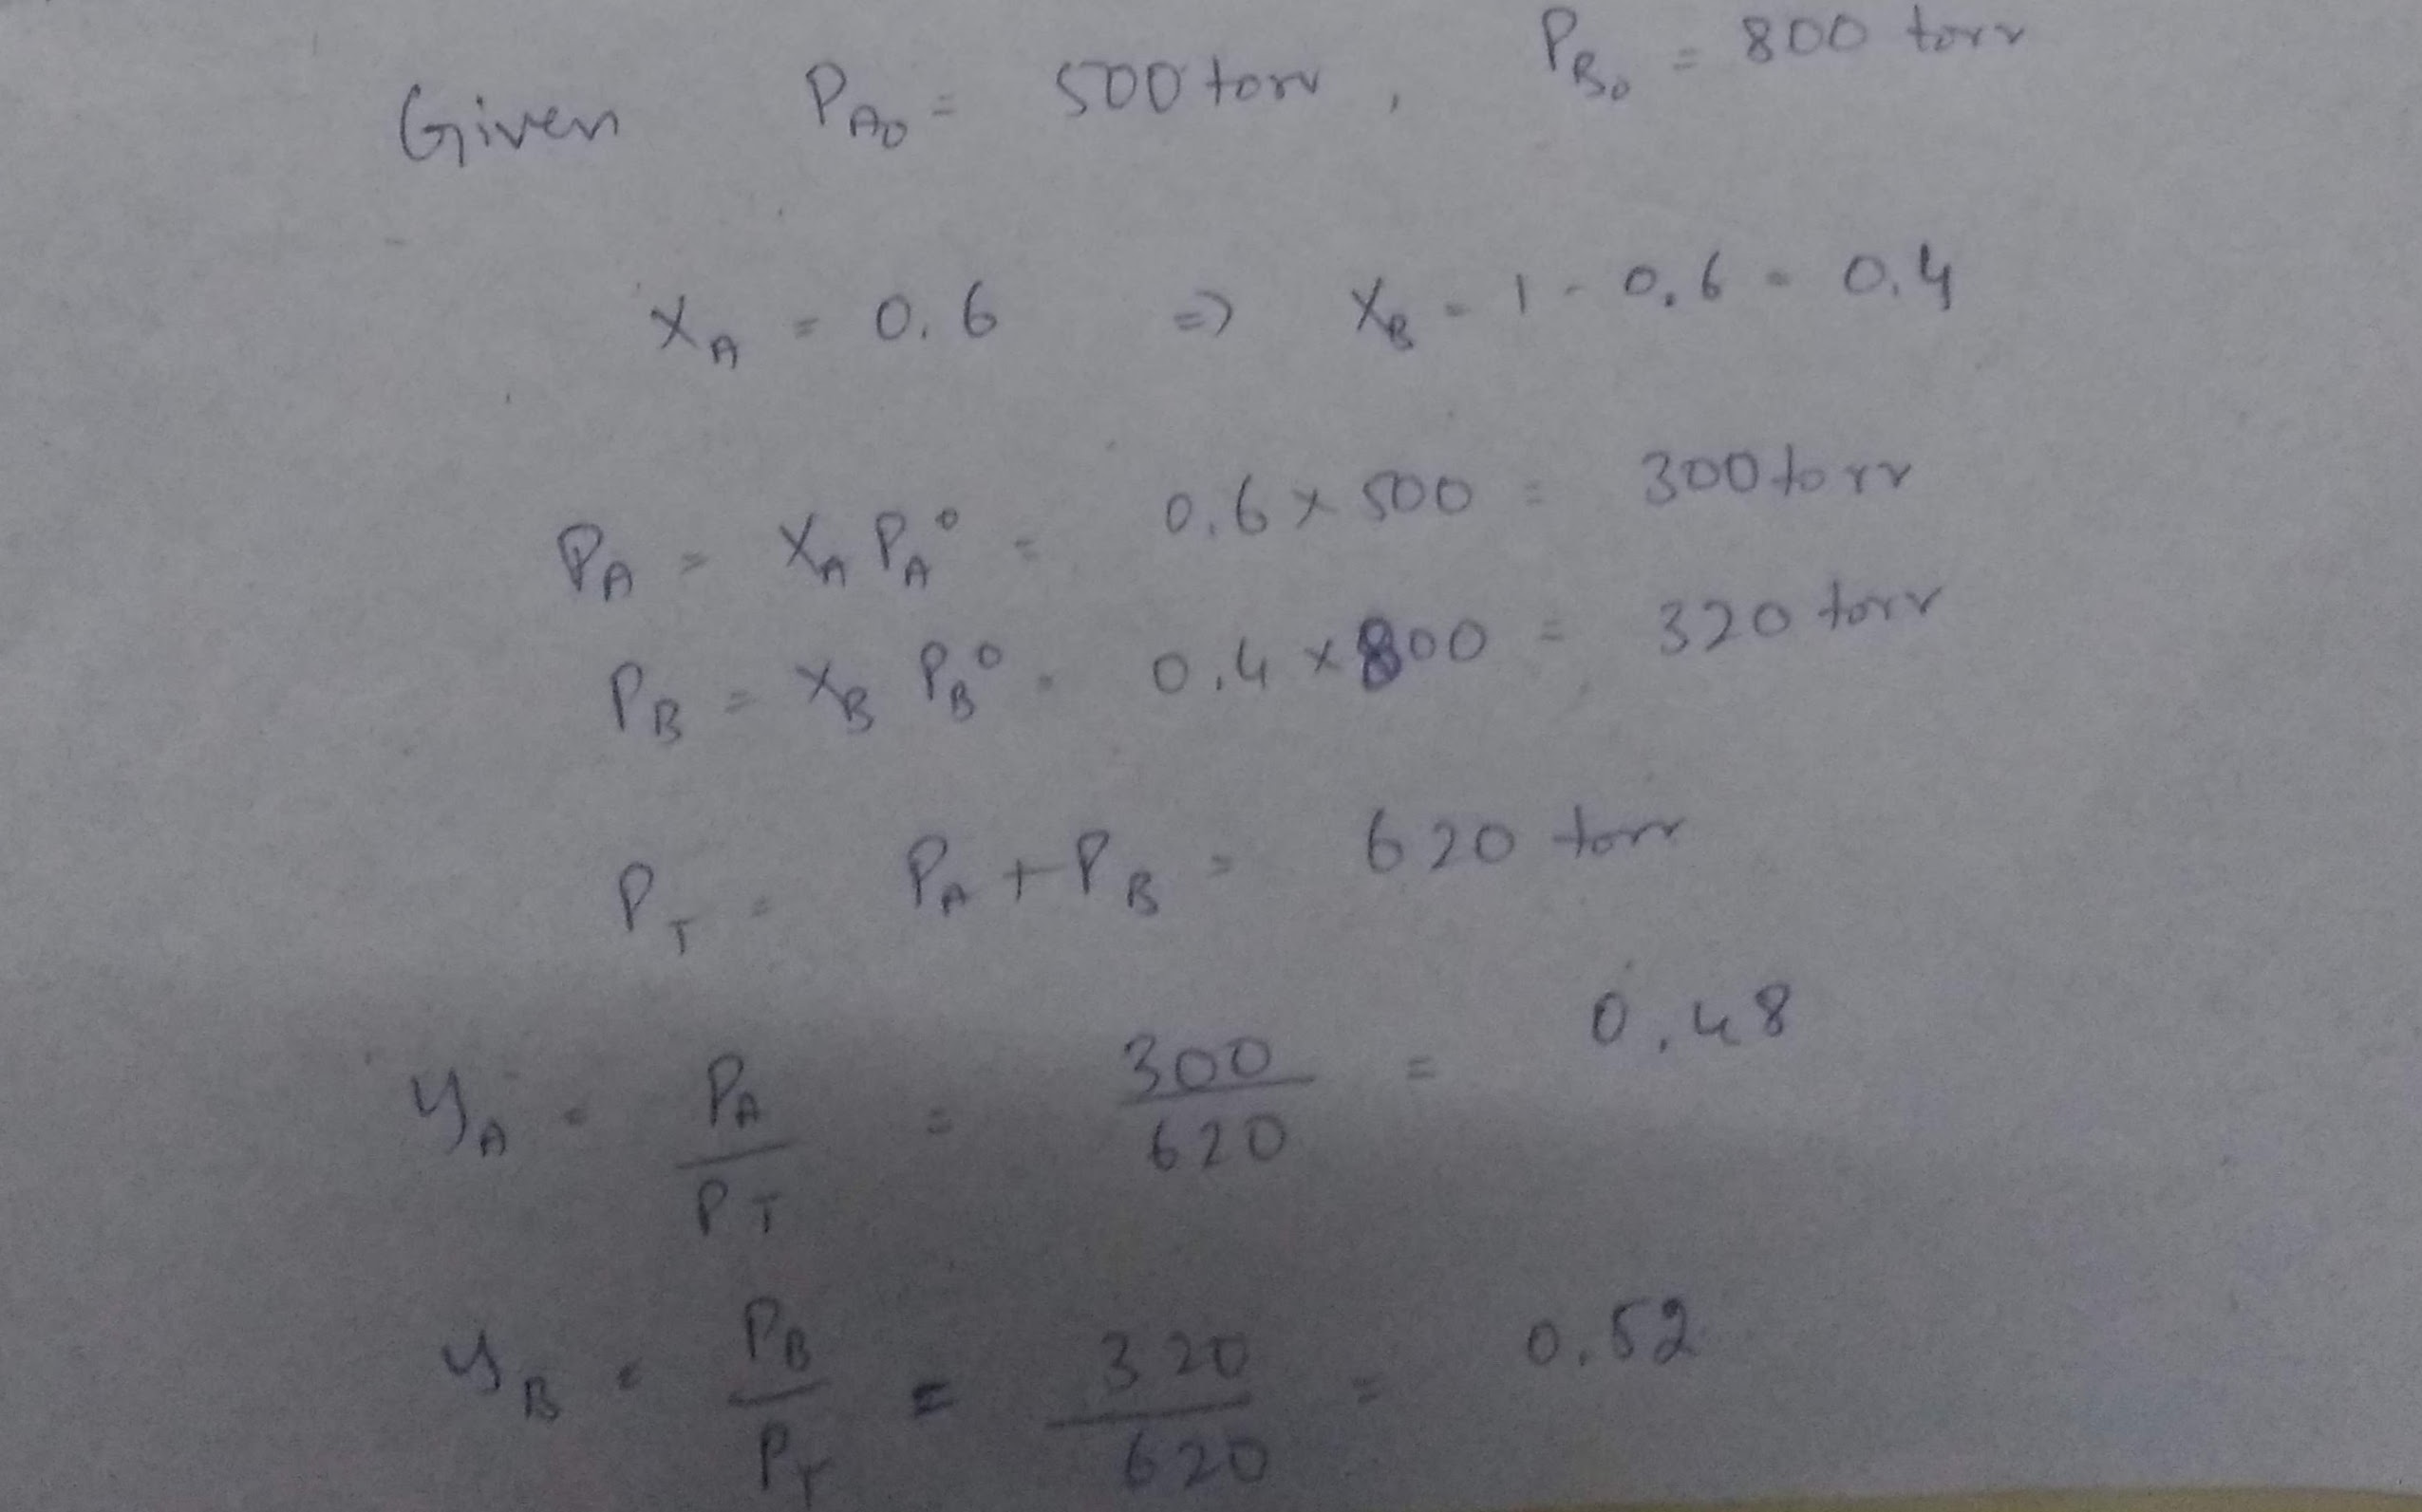 Given P_A0 = 500 torr, P_B0 = 800 torr
X_A = 0.6 => X_B = 1 - 0.6 = 0.4
P_A = X_A P_A° = 0.6 x 500 = 300 torr
P_B = X_B P_B° = 0.4 x 800 = 320 torr
P_T = P_A + P_B = 620 torr
y_A = P_A / P_T = 300 / 620 = 0.48
y_B = P_B / P_T = 320 / 620 = 0.52